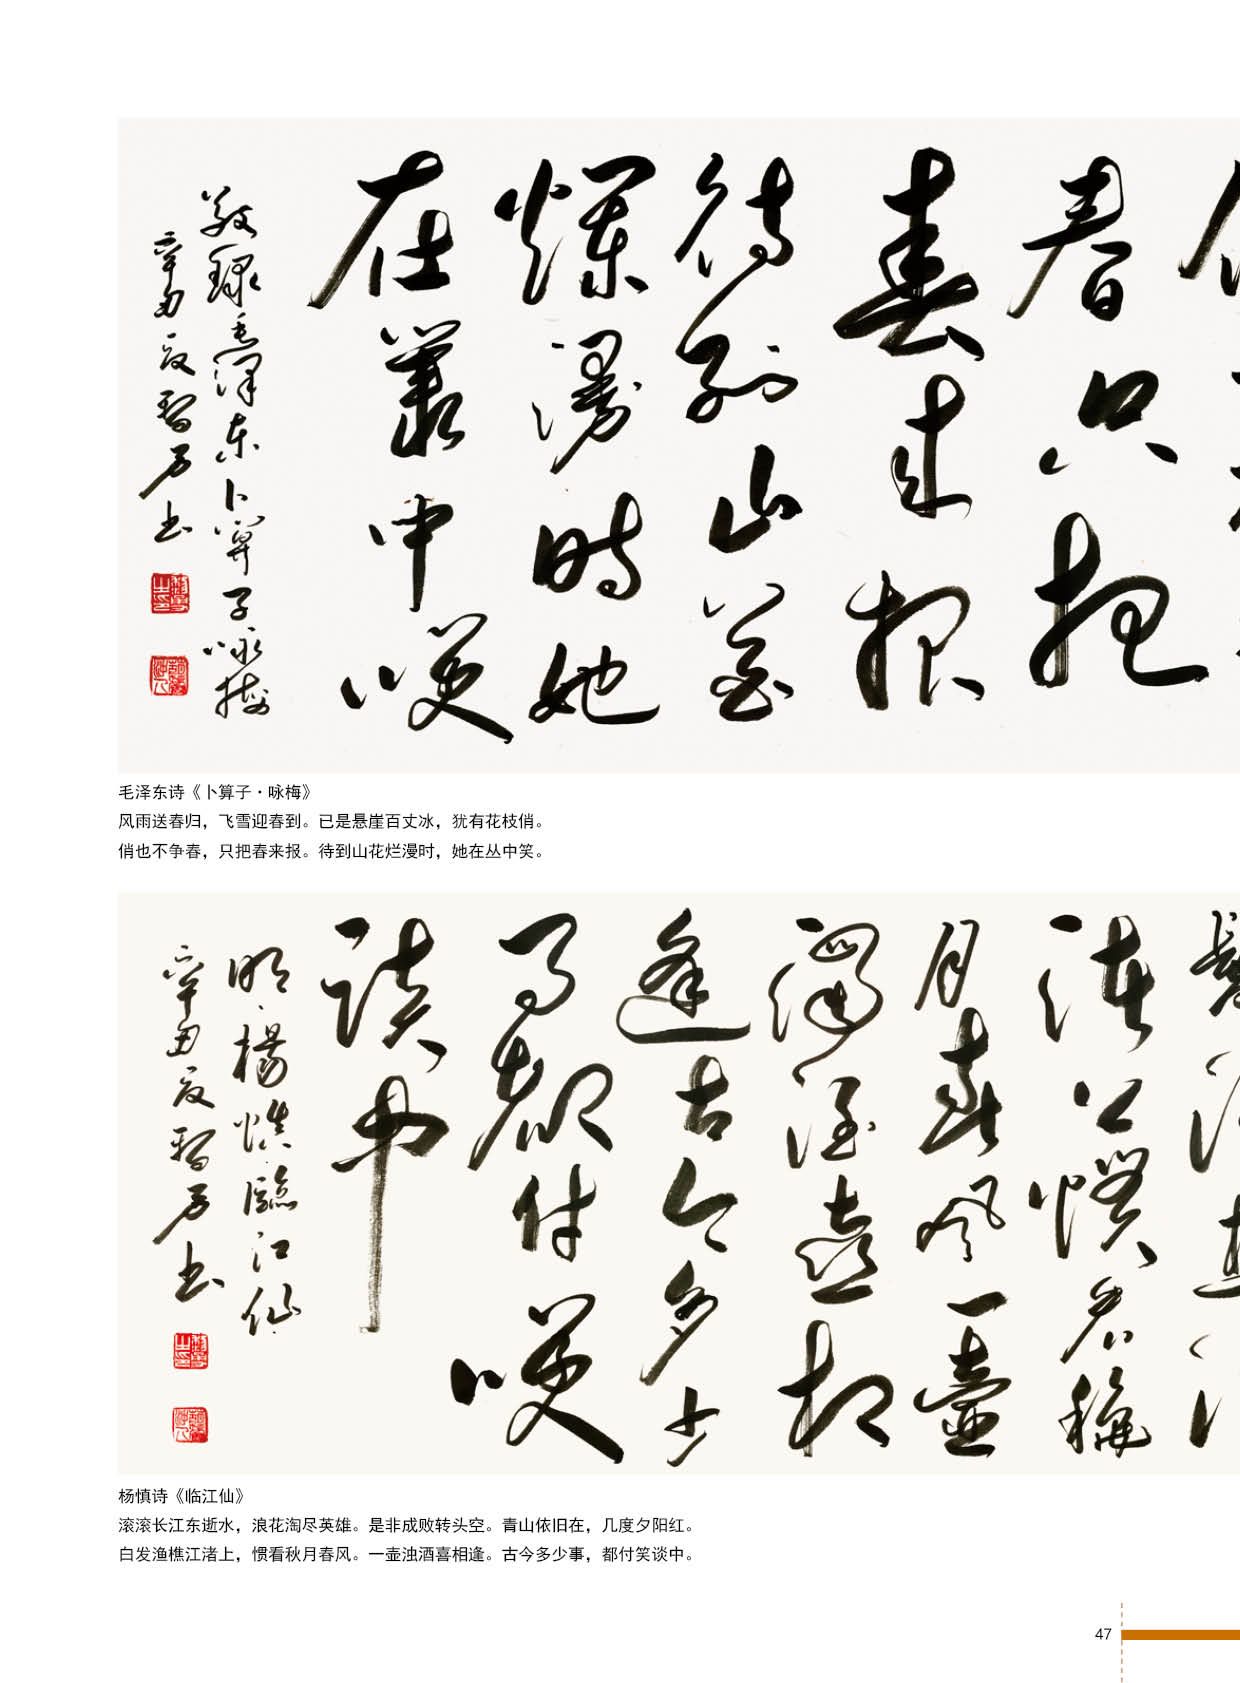 春只把
春来报
待到山花
爛漫時她
在叢中咲
敬録毛澤东卜算子咏梅
辛丑夏智书
毛泽东诗《卜算子·咏梅》
风雨送春归，飞雪迎春到。已是悬崖百丈冰，犹有花枝俏。
俏也不争春，只把春来报。待到山花烂漫时，她在丛中笑。
渚上惯看秋
月春风一壺
濁酒喜相
逢古今多少
事都付咲
谈中
明·楊慎·臨江仙
辛丑夏智书
杨慎诗《临江仙》
滚滚长江东逝水，浪花淘尽英雄。是非成败转头空。青山依旧在，几度夕阳红。
白发渔樵江渚上，惯看秋月春风。一壶浊酒喜相逢。古今多少事，都付笑谈中。
47